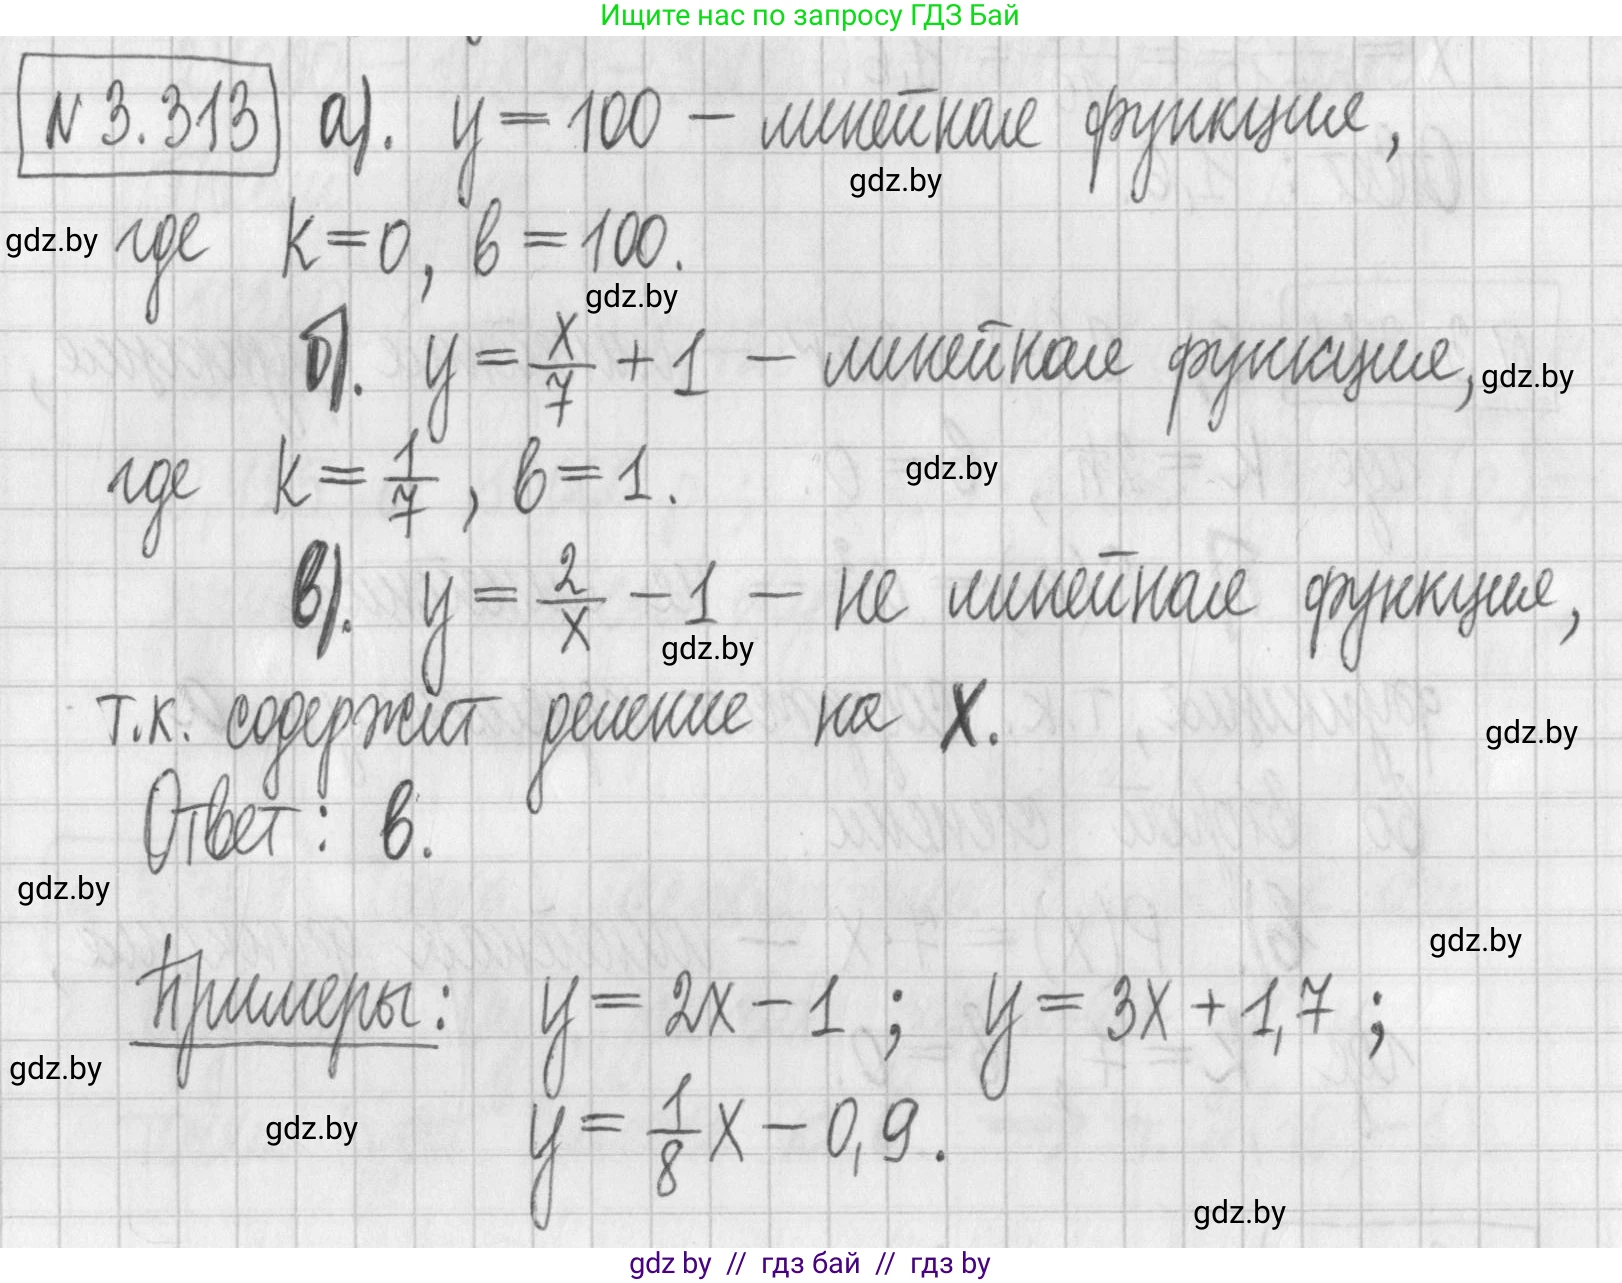 Ищите нас по запросу ГДЗ Бай
N 3.313 а). y = 100 – линейная функция,
gdz.by
gdz.by где k=0, в=100.
gdz.by
б). y = x/7 + 1 – линейная функция, gdz.by
где k = 1/7, в=1.
gdz.by
в). y = 2/x – 1 – не линейная функция,
gdz.by
т.к. содержит деление на X.
gdz.by
Ответ: в.
gdz.by
gdz.by
Примеры: y = 2x – 1 ; y = 3x + 1,7 ;
gdz.by
y = 1/8 x – 0,9.
gdz.by
gdz.by
gdz by // гдз бай // гдз by